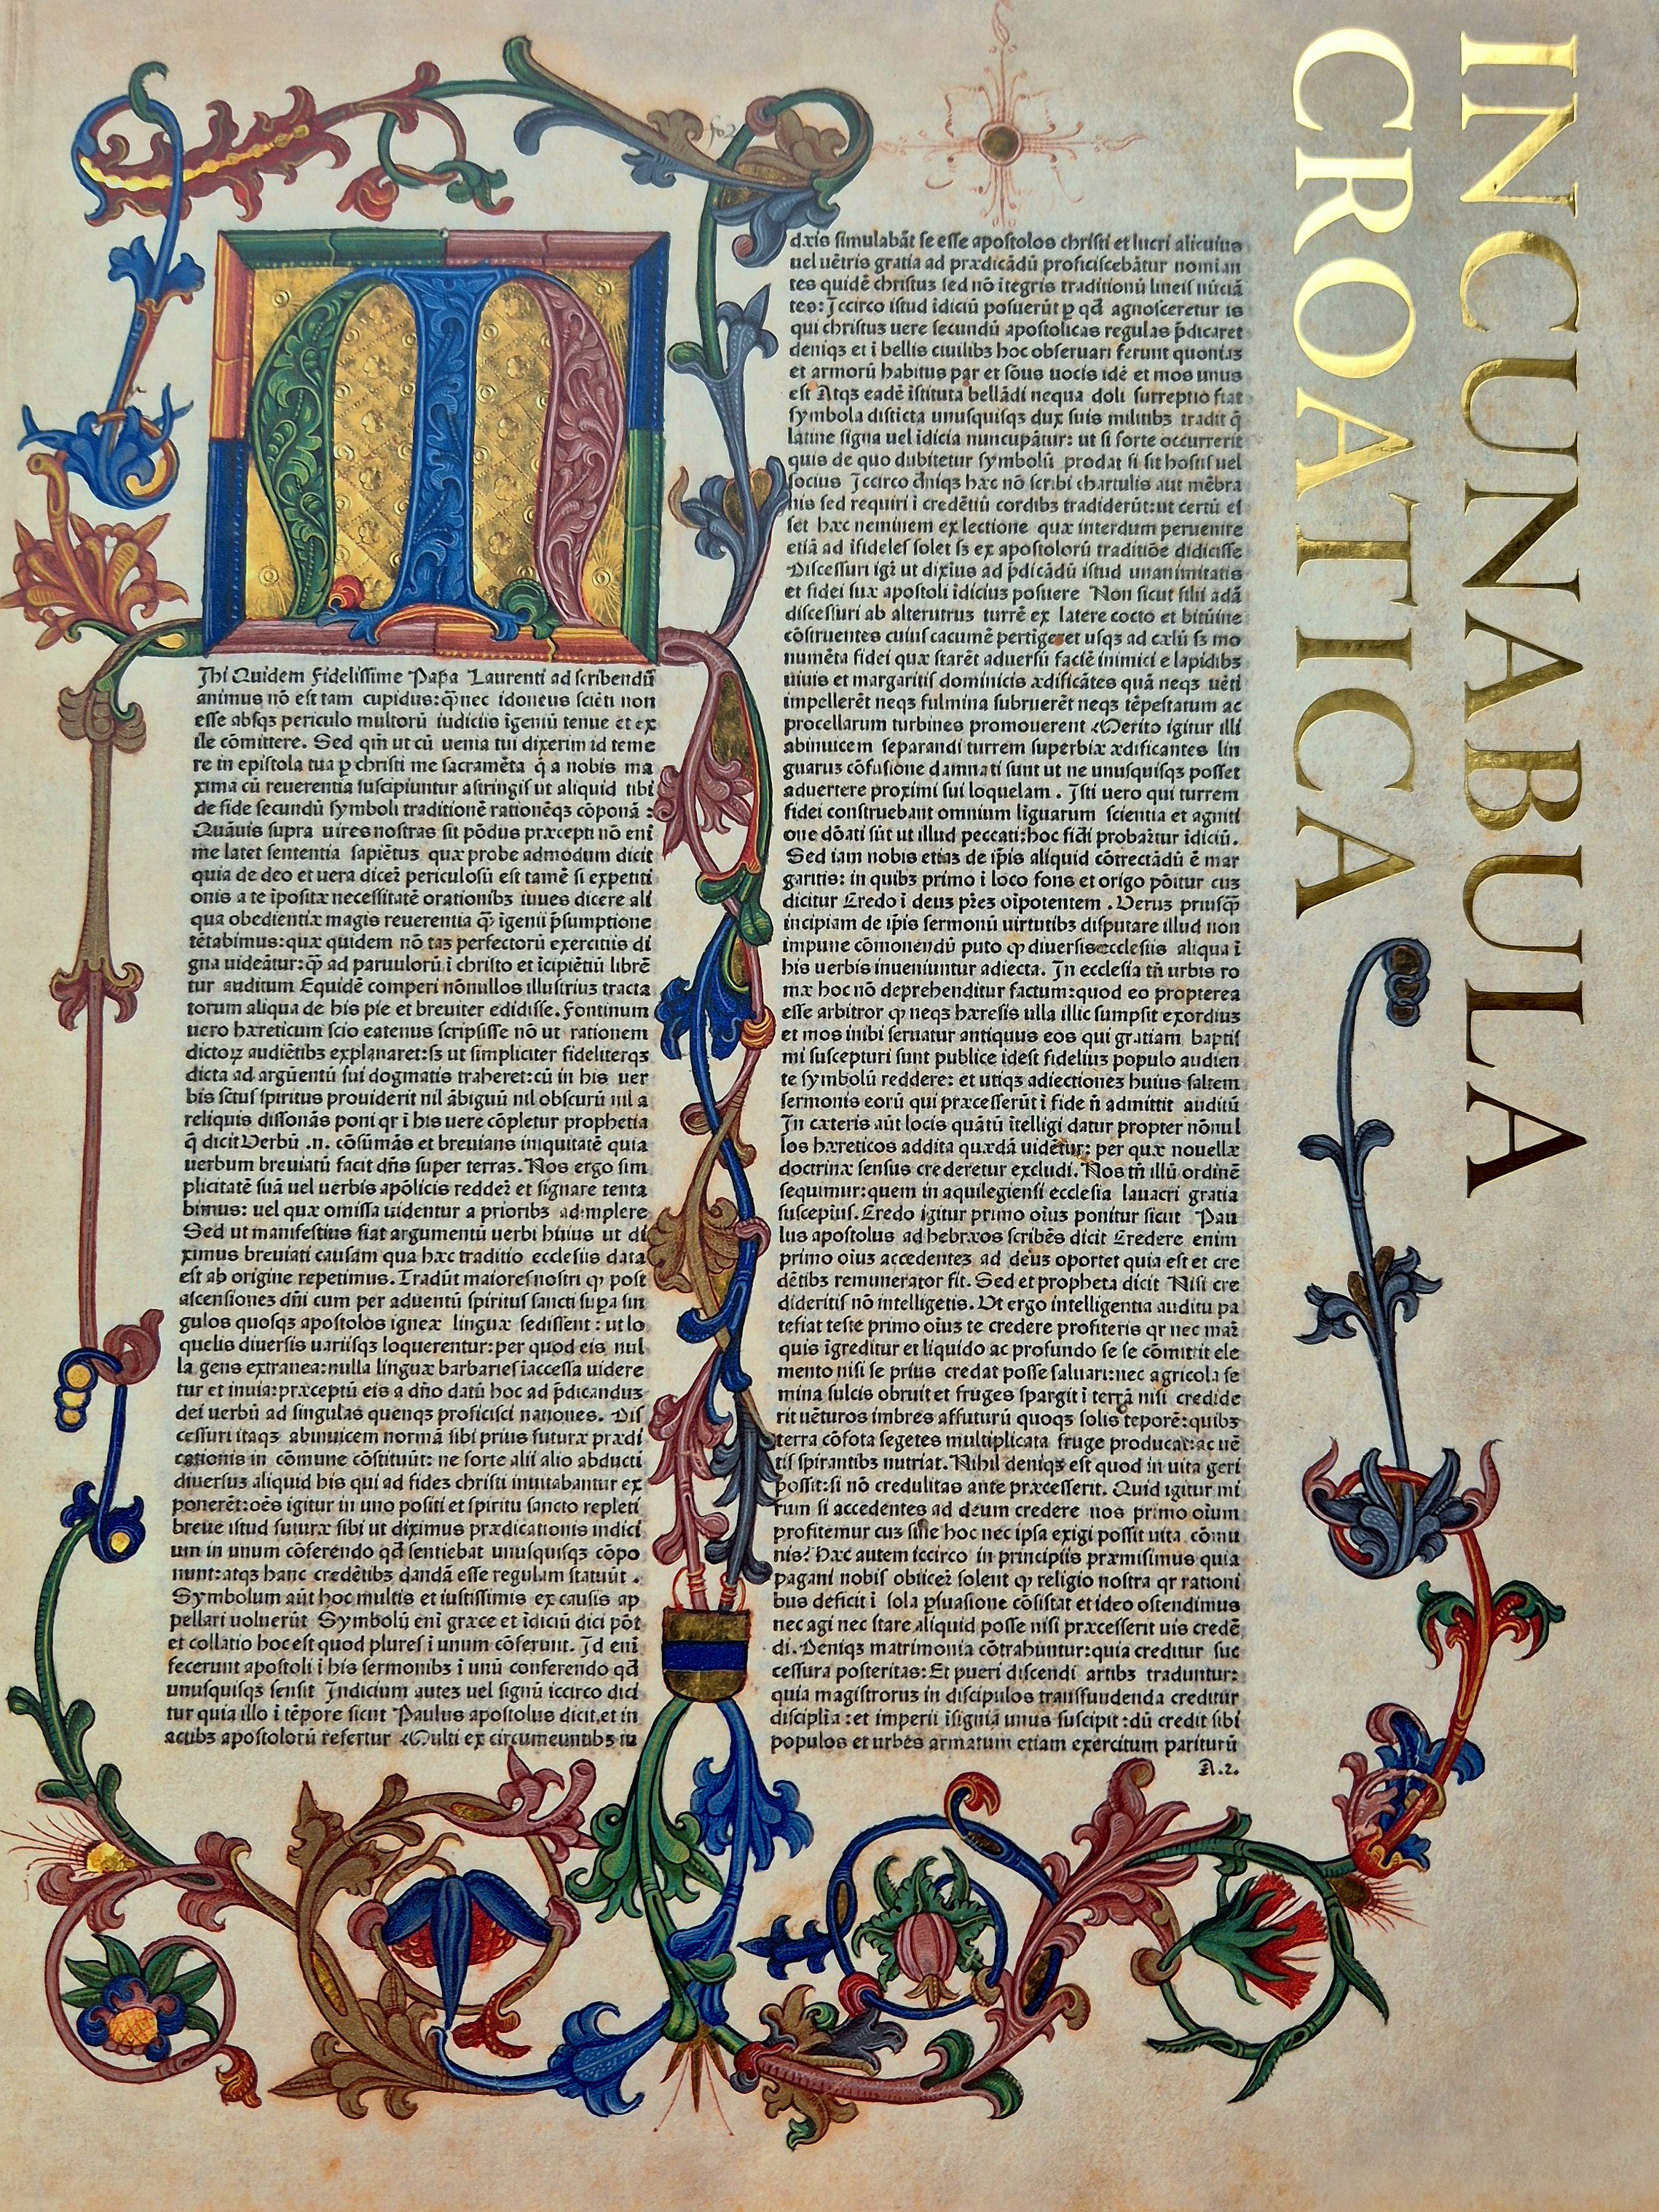 INCUNABULA
CROATICA
M
Ihi Quidem Fidelissime Papa Laurenti ad scribendū
animus nō est tam cupidus: q̄ nec idoneus sciēti non
esse absqꝫ periculo multorū iudiciis īgeniū tenue et ex
ile cōmittere. Sed qm̄ ut cū uenia tui dixerim id teme
re in epistola tua ꝑ christi me sacramēta q̄ a nobis ma
xima cū reuerentia suscipiuntur astringis ut aliquid tibi
de fide secundū symboli traditionē rationēqꝫ cōponā :
Quāuis supra uires nostras sit pōdus præcepti nō eni
me latet sententia sapiētuꝫ quæ probe admodum dicit
quia de deo et uera dicer̄ periculosū est tamē si expetiti
onis a te īpositæ necessitatē orationibꝫ iuues dicere ali
qua obedientiæ magis reuerentia q̄ꝫ īgenii p̄sumptione
tētabimus: quæ quidem nō taꝫ perfectorū exercitiis di
gna uideātur: q̄ꝫ ad paruulorū ī christo et īcipiētiū librē
tur auditum Equidē comperi nōnullos illustriuꝫ tracta
torum aliqua de his pie et breuiter edidisse. Fontinum
uero hæreticum scio eatenus scripsisse nō ut rationem
dictoꝝ audiētibꝫ explanaret: sꝫ ut simpliciter fideliterqꝫ
dicta ad argūentū sui dogmatis traheret: cū in his uer
bis sctūs spiritus prouiderit nil ābiguū nil obscurū nil a
reliquis dissonās poni qr ī his uere cōpletur prophetia
q̄ dicit Verbū .n. cōsūmās et breuians iniquitatē quia
uerbum breuiatū facit dn̄s super terraꝫ. Nos ergo sim
plicitatē suā uel uerbis apōlicis redder̄ et signare tenta
bimus: uel quæ omissa uidentur a prioribꝫ adimplere
Sed ut manifestius fiat argumentū uerbi huius ut di
ximus breuiati causam qua hæc traditio ecclesiis data
est ab origine repetimus. Tradūt maiores nostri ꝙ post
ascensioneꝫ dn̄i cum per aduentū spiritus sancti supa sin
gulos quosqꝫ apostolos igneæ linguæ sedissent : ut lo
quelis diuersis uariisqꝫ loquerentur: per quod eis nul
la gens extranea: nulla linguæ barbaries īaccessa uidere
tur et inuia: præceptū eis a dn̄o datū hoc ad p̄dicanduꝫ
dei uerbū ad singulas quenqꝫ proficisci nationes. Dis
cessuri itaqꝫ abinuicem normā sibi prius futuræ prædi
cationis in cōmune cōstituūt: ne forte alii alio abducti
diuersuꝫ aliquid his qui ad fideꝫ christi inuitabantur ex
ponerēt: oēs igitur in uno positi et spiritu sancto repleti
breue istud futuræ sibi ut diximus prædicationis indici
um in unum cōferendo qd̄ sentiebat unusquisqꝫ cōpo
nunt: atqꝫ hanc credētibꝫ dandā esse regulam statuūt .
Symbolum aūt hoc multis et iustissimis ex causis ap
pellari uoluerūt Symbolū eni græce et īdiciū dici pōt
et collatio hoc est quod plures ī unum cōferunt. Id eni
fecerunt apostoli ī his sermonibꝫ ī unū conferendo qd̄
unusquisqꝫ sensit Indicium auteꝫ uel signū iccirco dici
tur quia illo ī tēpore sicut Paulus apostolus dicit, et in
actibꝫ apostolorū refertur Multi ex circumeuntibꝫ iu
dæis simulabāt se esse apostolos christi et lucri alicuius
uel uētris gratia ad prædicādū proficiscebātur nomian
tes quidē christuꝫ sed nō ītegris traditionū lineis nūciā
tes: Iccirco istud īdiciū posuerūt ꝑ qd̄ agnosceretur is
qui christuꝫ uere secundū apostolicas regulas p̄dicaret
deniqꝫ et ī bellis ciuilibꝫ hoc obseruari ferunt quoniaꝫ
et armorū habitus par et sōus uocis idē et mos unus
est Atqꝫ eadē īstituta bellādi nequa doli surreptio fiat
symbola disticta unusquisqꝫ dux suis militibꝫ tradit q̄
latine signa uel īdicia nuncupātur: ut si forte occurrerit
quis de quo dubitetur symbolū prodat si sit hostis uel
socius Iccirco dn̄iqꝫ hæc nō scribi chartulis aut mēbra
nis sed requiri ī credētiū cordibꝫ tradiderūt: ut certū es
set hæc neminem ex lectione quæ interdum peruenire
etiā ad īfideles solet sꝫ ex apostolorū traditiōe didicisse
Discessuri igr̄ ut dixiꝰus ad p̄dicādū istud unanimitatis
et fidei suæ apostoli īdiciuꝫ posuere Non sicut filii adā
discessuri ab alterutruꝫ turrē ex latere cocto et bitūine
cōstruentes cuius cacumē pertigeret usqꝫ ad cælū sꝫ mo
numēta fidei quæ starēt aduersū faciē inimici e lapidibꝫ
uiuis et margaritis dominicis ædificātes quā neqꝫ uēti
impellerēt neqꝫ fulmina subruerēt neqꝫ tēpestatum ac
procellarum turbines promouerent Merito igitur illi
abinuicem separandi turrem superbiæ ædificantes lin
guaruꝫ cōfusione damnati sunt ut ne unusquisqꝫ posset
aduertere proximi sui loquelam . Isti uero qui turrem
fidei construebant omnium līguarum scientia et agniti
one dōati sūt ut illud peccati: hoc fidei probaretur īdiciū.
Sed iam nobis etiaꝫ de īp̄is aliquid cōtrectādū ē mar
garitis: in quibꝫ primo ī loco fons et origo pōitur cuꝫ
dicitur Credo ī deuꝫ pr̄eꝫ oīpotentem . Veruꝫ priusq̄ꝫ
incipiam de īp̄is sermonū uirtutibꝫ disputare illud non
impune cōmonendū puto ꝙ diuersis ecclesiis aliqua ī
his uerbis inueniuntur adiecta. In ecclesia tn̄ urbis ro
mæ hoc nō deprehenditur factum: quod eo propterea
esse arbitror ꝙ neqꝫ hæresis ulla illic sumpsit exordiuꝫ
et mos inibi seruatur antiquus eos qui gratiam baptis
mi suscepturi sunt publice idest fideliuꝫ populo audien
te symbolū reddere: et utiqꝫ adiectioneꝫ huius saltem
sermonis eorū qui præcesserūt ī fide n̄ admittit auditū
In cæteris aūt locis quātū ītelligi datur propter nōnul
los hæreticos addita quædā uidētur: per quæ nouellæ
doctrinæ sensus crederetur excludi. Nos tn̄ illū ordinē
sequimur: quem in aquilegiensi ecclesia lauacri gratia
suscepiꝰus. Credo igitur primo oīuꝫ ponitur sicut Pau
lus apostolus ad hebræos scribēs dicit Credere enim
primo oīuꝫ accedenteꝫ ad deuꝫ oportet quia est et cre
dētibꝫ remunerator fit. Sed et propheta dicit Nisi cre
dideritis nō intelligetis. Ut ergo intelligentia auditu pa
tefiat teste primo oīuꝫ te credere profiteris qr nec mar̄
quis īgreditur et liquido ac profundo se se cōmittit ele
mento nisi se prius credat posse saluari: nec agricola se
mina sulcis obruit et fruges spargit ī terrā nisi credide
rit uēturos imbres affuturū quoqꝫ solis teporē: quibꝫ
terra cōfota segetes multiplicata fruge producat: ac uē
tis spirantibꝫ nutriat. Nihil deniqꝫ est quod in uita geri
possit: si nō credulitas ante præcesserit. Quid igitur mi
rum si accedentes ad deum credere nos primo oīum
profitemur cuꝫ sine hoc nec ipsa exigi possit uita cōmu
nis? Hæc autem iccirco in principiis præmisimus quia
pagani nobis obiicer̄ solent ꝙ religio nostra qr rationi
bus deficit ī sola ꝑsuasione cōsistat et ideo ostendimus
nec agi nec stare aliquid posse nisi præcesserit uis credē
di. Deniqꝫ matrimonia cōtrahuntur: quia creditur suc
cessura posteritas: Et pueri discendi artibꝫ traduntur:
quia magistroruꝫ in discipulos transfundenda creditur
discipl̄ia : et imperii īsignia unus suscipit : dū credit sibi
populos et urbes armatum etiam exercitum parituru
A.2.